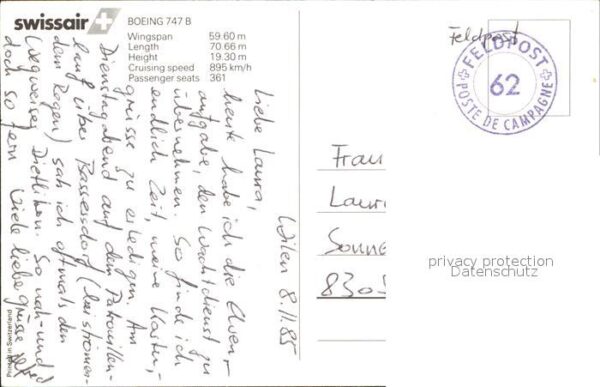 swissair
BOEING 747 B
Wingspan 59.60 m
Length 70.66 m
Height 19.30 m
Cruising speed 895 km/h
Passenger seats 361
Wilen 8.11.85
Liebe Laura,
heute habe ich die Ehren-
aufgabe, den Wachtdienst zu
übernehmen. So finde ich
endlich Zeit, meine Karten-
grüsse zu erledigen. Am
Dienstagabend auf dem Patrouillen-
lauf über Bassersdorf (bei strömen-
dem Regen) sah ich oftmals den
Wegweiser Dietlikon. So nah und
doch so fern
Viele liebe Grüsse
Printed in Switzerland
Feldpost
FELDPOST
62
POSTE DE CAMPAGNE
Frau
Laura
Sonne
8305
privacy protection
Datenschutz